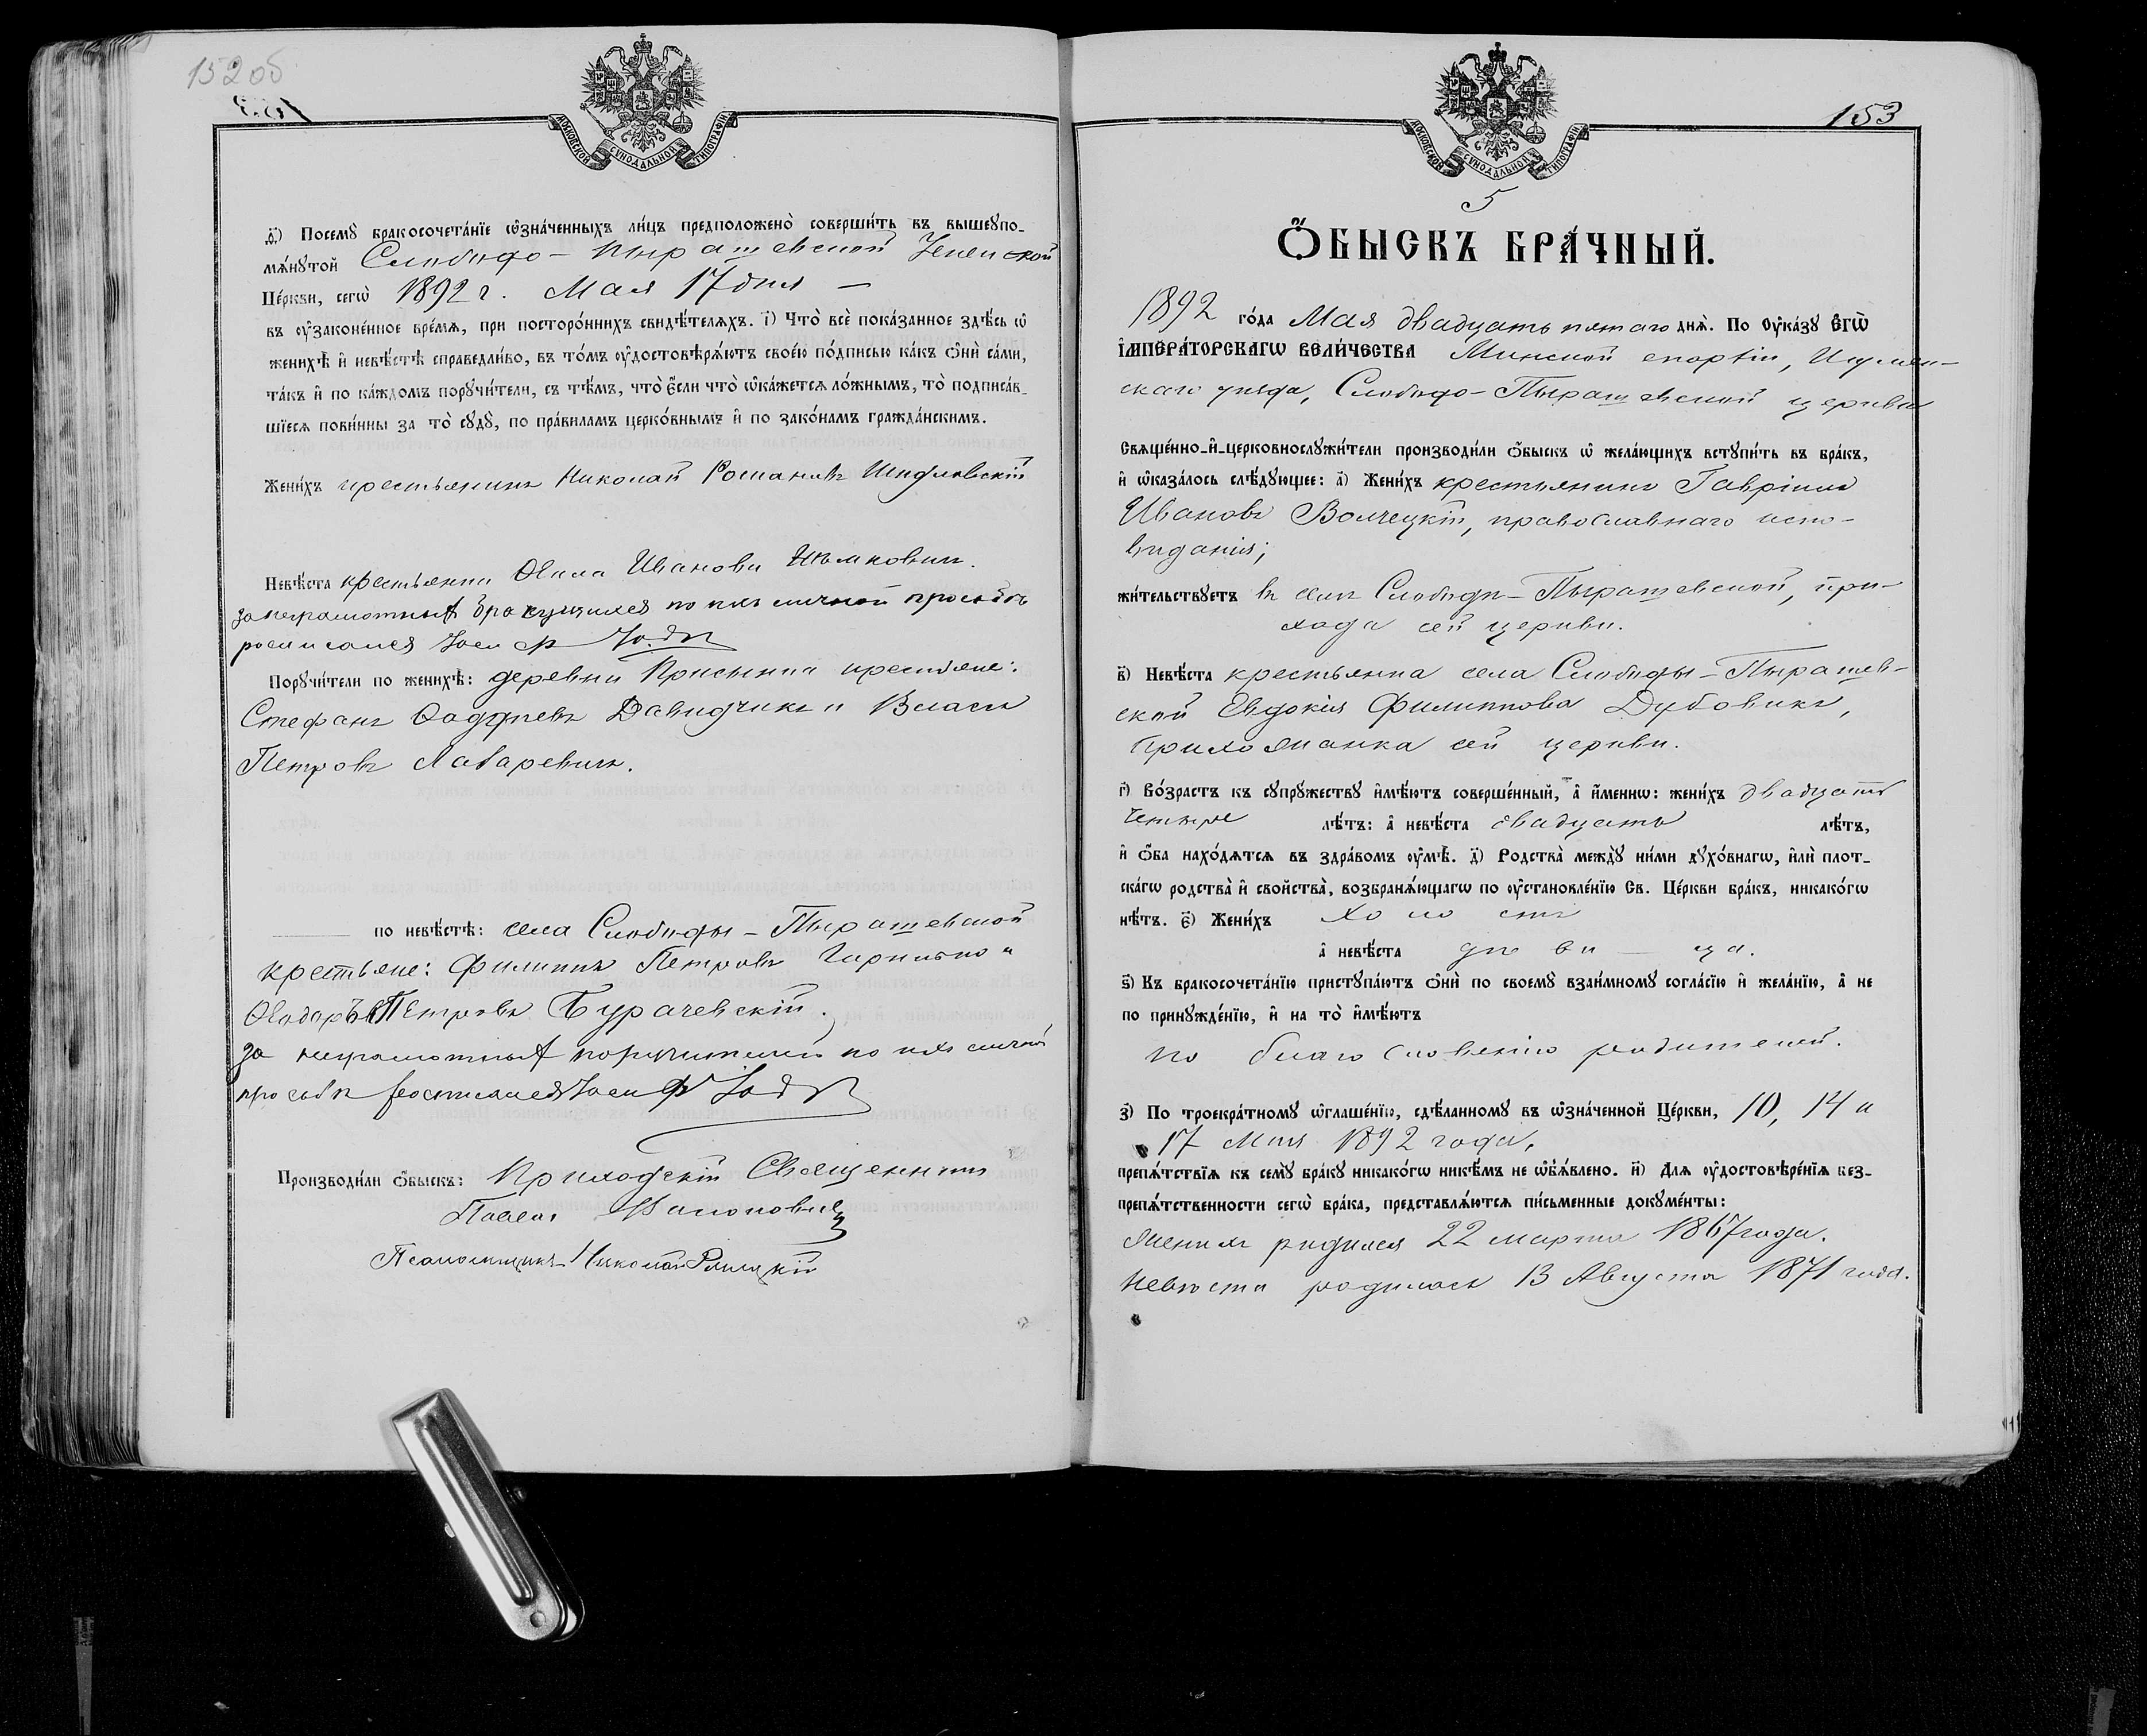 152 об
МОСКОВСКОЙ СѴНОДАЛЬНОЙ ТИПОГРАФІИ
ѳ҃) Посемꙋ бракосочета́нїе ѡ҆зна́ченныхъ ли́цъ предположено̀ соверши́ть въ вышеꙋпо-
мѧ́нꙋтой Слободо-Пырашевской Успенской
Це́ркви, сегѡ̀ 1892 г. Мая 17 дня —
въ ᲂу҆законе́нное вре́мѧ, при посторо́ннихъ свидѣ́телѧхъ. і҃) Что̀ всѐ пока́занное здѣ́сь ѡ҆
женихѣ̀ и҆ невѣ́стѣ справедли́во, въ то́мъ ᲂу҆достовѣрѧ́ютъ свое́ю по́дписью ка́къ ѻ҆нѝ са́ми,
та́къ и҆ по ка́ждомъ порꙋчи́тели, съ тѣ́мъ, что̀ є҆́сли что̀ ѡ҆ка́жетсѧ ло́жнымъ, то̀ подписа́в-
шїесѧ пови́нны за то̀ сꙋдꙋ̀, по пра́виламъ церко́внымъ и҆ по зако́намъ гражда́нскимъ.
Жени́хъ крестьянинъ Николай Романовъ Шидловскій
Невѣ́ста крестьянка Ѳекла Иванова
за неграмотныхъ бракущихся по ихъ личной просьбѣ
росписался Іосифъ
Порꙋчи́тели по женихѣ̀: деревни Присынка крестьяне:
Стефанъ Ѳаддеевъ Давидчикъ и Власъ
Петровъ Лазаревичъ.
по невѣ́стѣ: села Слободы-Пырашевской
крестьяне: Филиппъ Петровъ и
Ѳеодоръ Петровъ Бурачевскій.
за неграмотныхъ поручителей по ихъ личной
просьбѣ росписался Іосифъ
Производи́ли ѻ҆́быскъ: Приходскій Священникъ
Павелъ
Псаломщикъ Николай
153
МОСКОВСКОЙ СѴНОДАЛЬНОЙ ТИПОГРАФІИ
5
Ѻ҆́БЫСКЪ БРА́ЧНЫЙ.
1892 го́да Мая двадцать пятаго днѧ̀. По Оу҆ка́зꙋ Є҆гѡ̀
І҆мпера́торскагѡ Вели́чества Минской епархіи, Игумен-
скаго уѣзда, Слободо-Пырашевской церкви
Свѧще́нно-и҆-церковнослꙋжи́тели производи́ли ѻ҆́быскъ ѡ҆ жела́ющихъ встꙋпи́ть въ бра́къ,
и҆ ѡ҆каза́лось слѣ́дꙋющее: а҃) Жени́хъ крестьянинъ Гавріилъ
Ивановъ Волчецкій, православнаго испо-
вѣданія;
жи́тельствꙋетъ въ селѣ Слободѣ-Пырашевской, при-
хода сей церкви.
в҃) Невѣ́ста крестьянка села Слободы-Пырашев-
ской Евдокія Филиппова Дубовикъ,
прихожанка сей церкви.
г҃) Во́зрастъ къ сꙋпрꙋ́жествꙋ и҆мѣ́ютъ соверше́нный, а҆ и҆́меннѡ: жени́хъ двадцать
четыре лѣ́тъ: а҆ невѣ́ста двадцать лѣ́тъ,
и҆ ѻ҆́ба нахо́дѧтсѧ въ здра́вомъ ᲂу҆мѣ̀. д҃) Родства̀ междꙋ̀ ни́ми дꙋхо́внагѡ, и҆лѝ плот-
ска́гѡ родства̀ и҆ свойства̀, возбранѧ́ющагѡ по ᲂу҆становле́нїю Св. Це́ркви бра́къ, никако́гѡ
нѣ́тъ. є҃) Жени́хъ холостъ
а҆ невѣ́ста дѣви — ца.
ѕ҃) Къ бракосочета́нїю пристꙋпа́ютъ ѻ҆нѝ по своемꙋ̀ взаи́мномꙋ согла́сїю и҆ жела́нїю, а҆ не
по принꙋжде́нїю, и҆ на то̀ и҆мѣ́ютъ
по благословенію родителей.
з҃) По троекра́тномꙋ ѡ҆глаше́нїю, сдѣ́ланномꙋ въ ѡ҆зна́ченной Це́ркви, 10, 14 и
17 Мая 1892 года,
препѧ́тствїѧ къ семꙋ̀ бра́кꙋ никако́гѡ никѣ́мъ не ѡ҆б̾ѧ́влено. и҃) Длѧ ᲂу҆достовѣре́нїѧ без-
препѧ́тственности сегѡ̀ бра́ка, представлѧ́ютсѧ пи́сьменные докꙋме́нты:
Женихъ родился 22 марта 1867 года.
Невѣста родилась 13 Августа 1871 года.